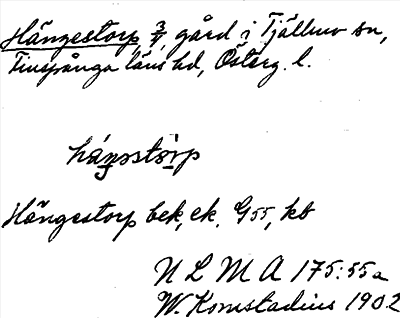 Hängestorp 3/4, gård i Tjällmo sn,
Finspånga läns hd, Österg. l.
háŋstòrp
Hängestorp bek, ek. G 55, kb
N L M A 175:55a
W. Komstadius 1902